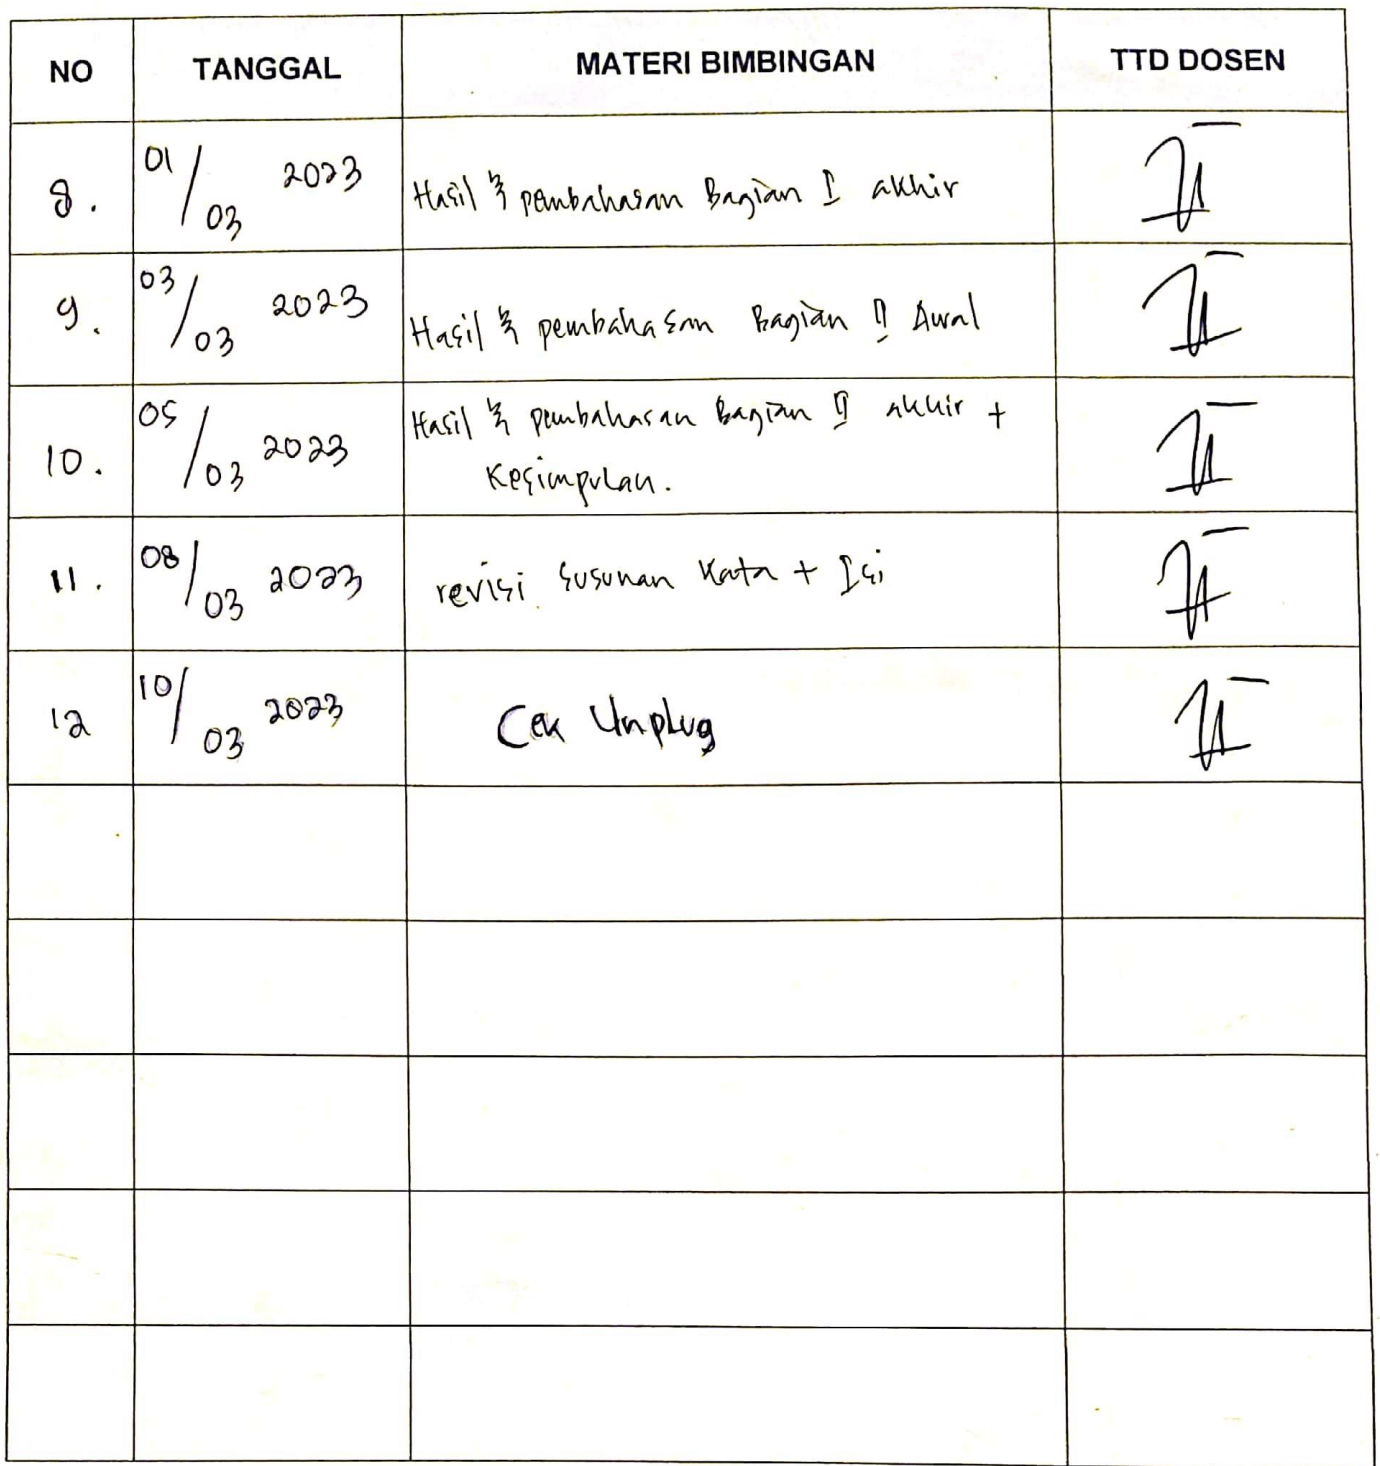 NO TANGGAL MATERI BIMBINGAN TTD DOSEN
8. 01/03 2023 Hasil & pembahasan Bagian I akhir
9. 03/03 2023 Hasil & pembahasan Bagian II Awal
10. 05/03 2023 Hasil & pembahasan Bagian II akhir +
Kesimpulan.
11. 08/03 2023 revisi susunan Kata + Isi
12 10/03 2023 Cek Unplug